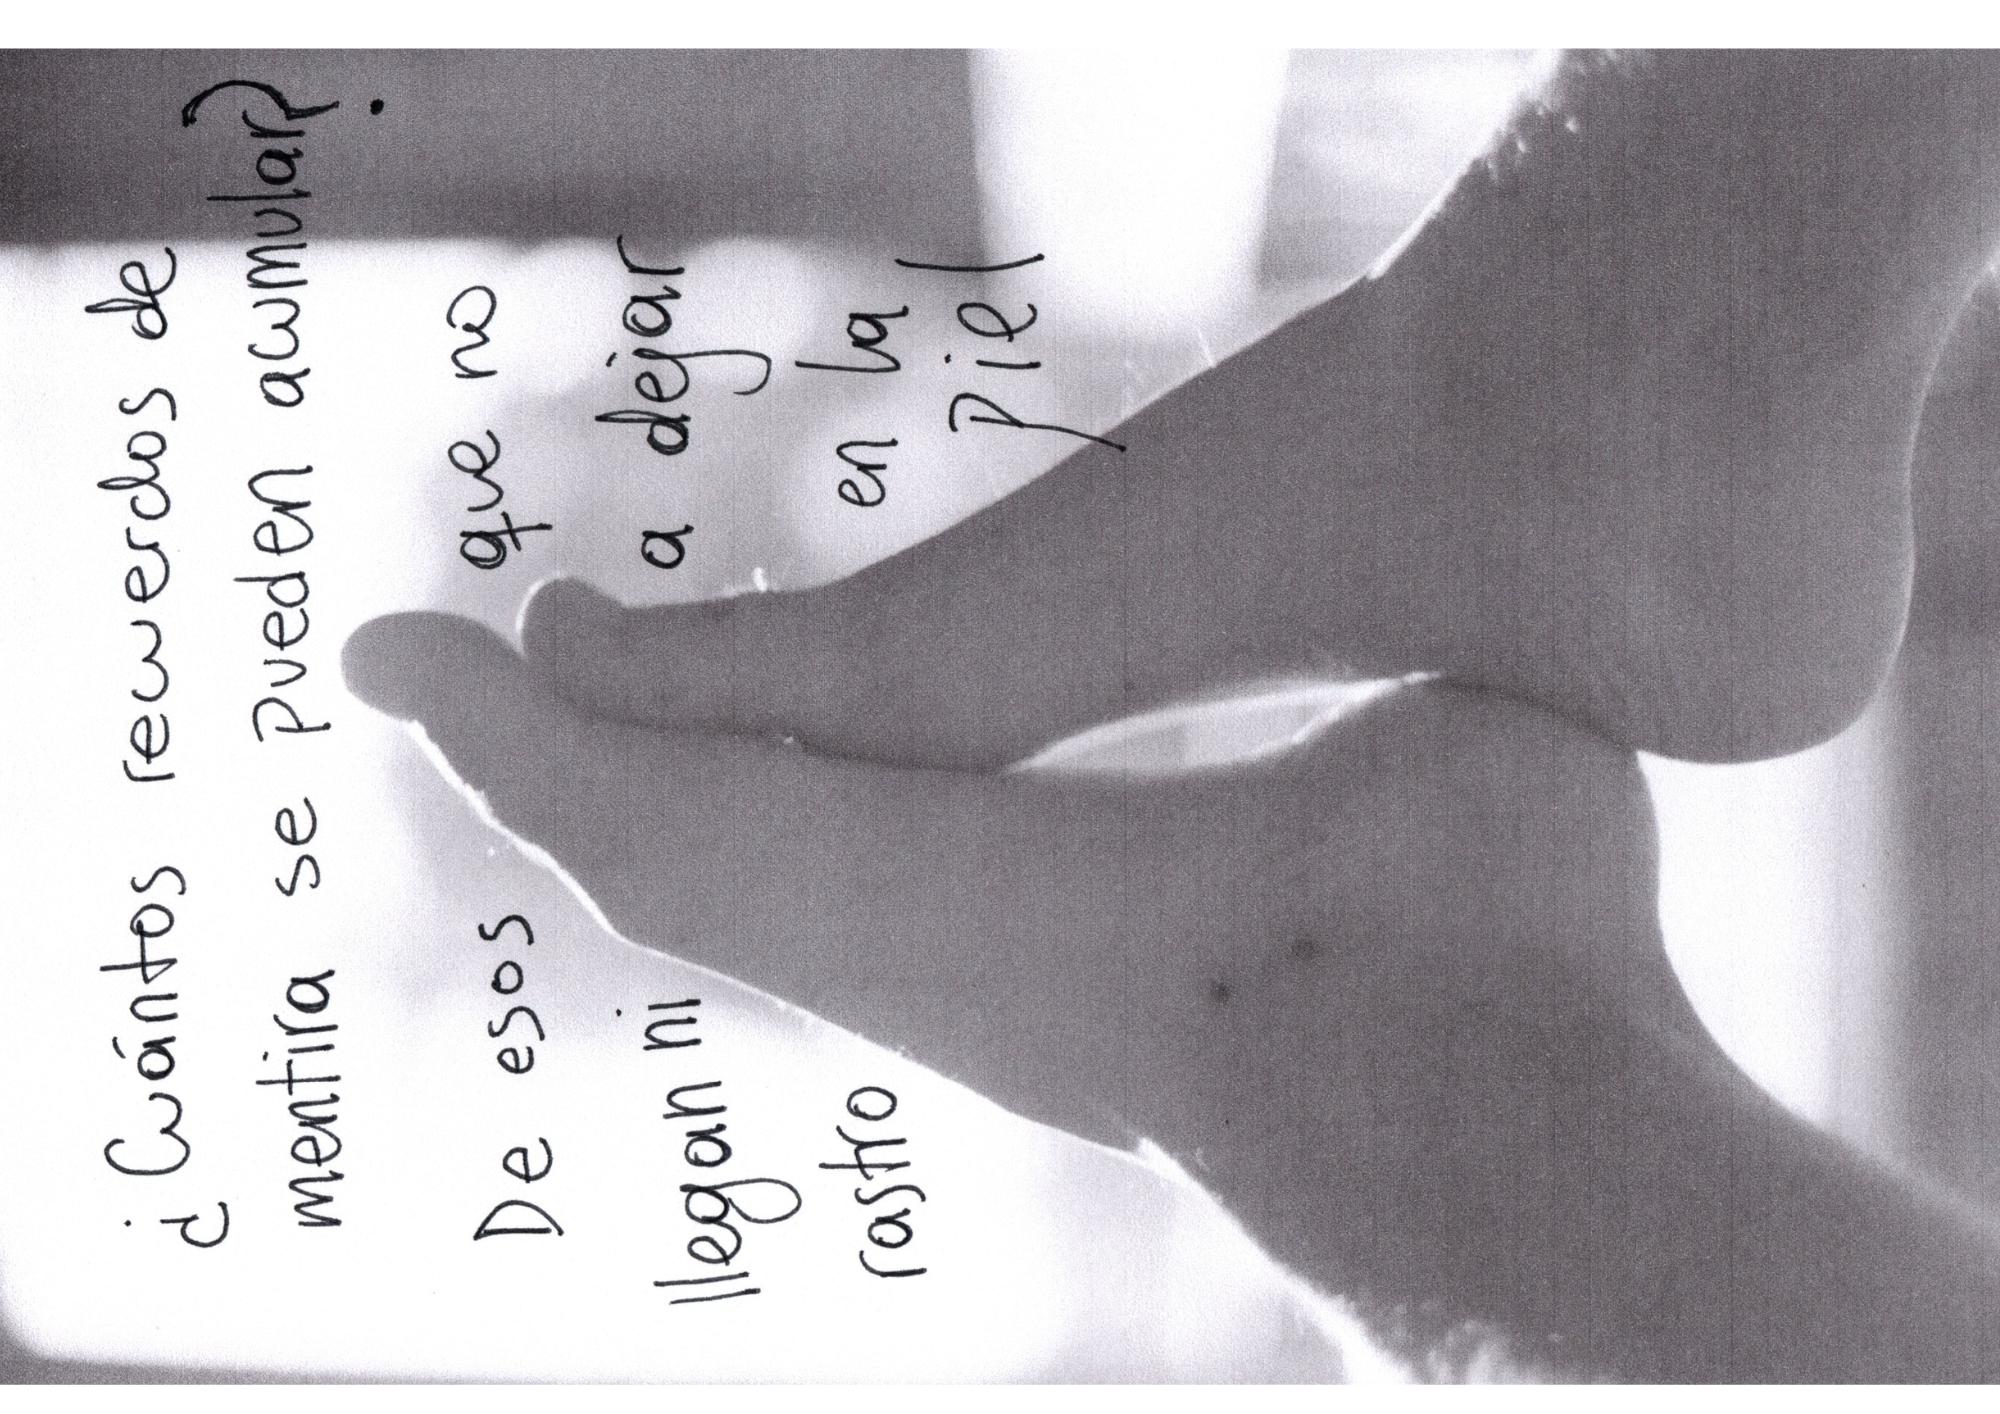 ¿Cuántos recuerdos de
mentira se pueden acumular?
De esos que no
llegan ni a dejar
rastro en la
piel